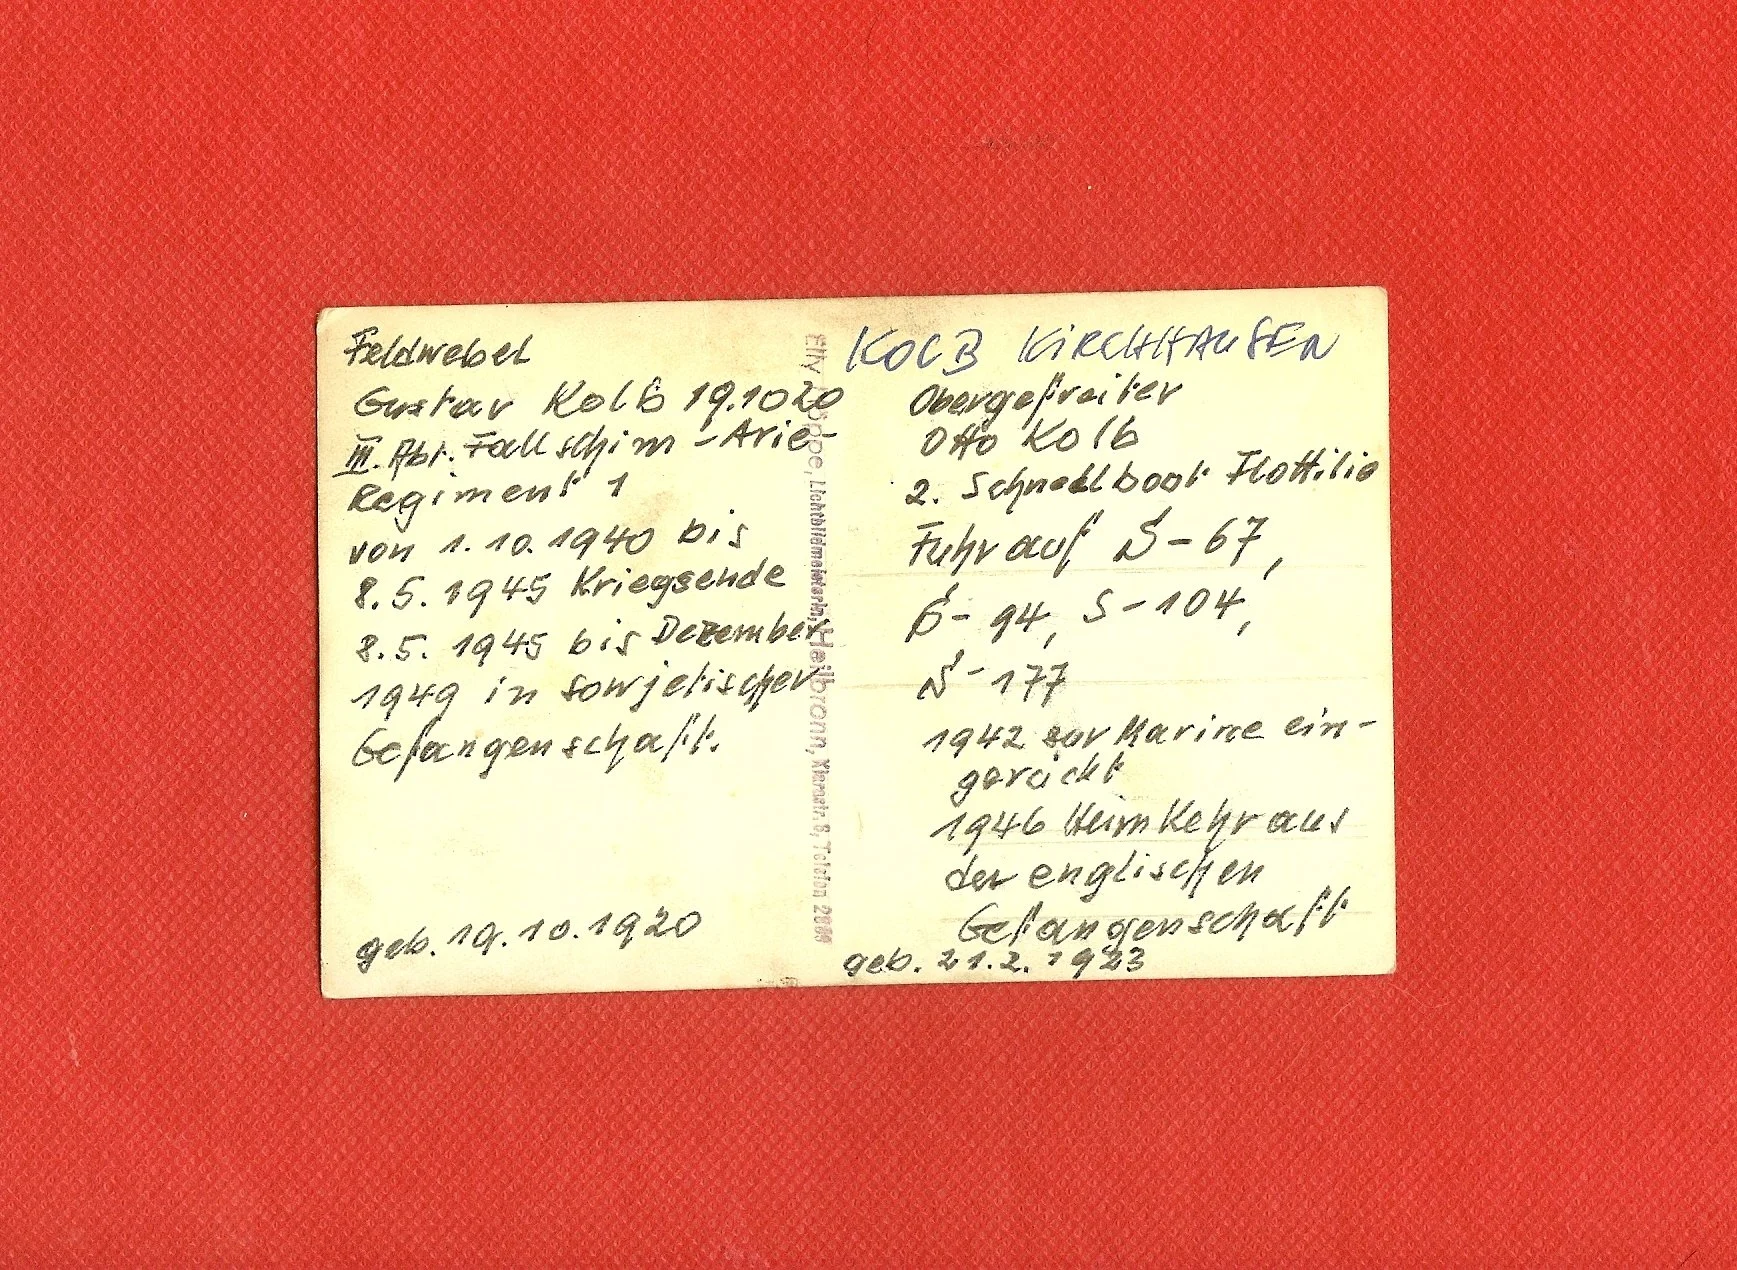 Feldwebel
Gustav Kolb 19.1020
III. Abt. Fallschim-Arie-
Regiment 1
von 1.10.1940 bis
8.5.1945 Kriegsende
8.5.1945 bis Dezember
1949 in sowjetischer
Gefangenschaft.
geb. 19.10.1920
Elly Lichtbildmeisterin, Heilbronn, 8, Telefon
KOLB KiRCHHAUSEN
Obergefreiter
Otto Kolb
2. Schnellboot Flottilie
Fuhr auf S-67,
S-94, S-104,
S-177
1942 zur Marine ein-
gerückt
1946 Heimkehr aus
der englischen
Gefangenschaft
geb. 21.2.1923